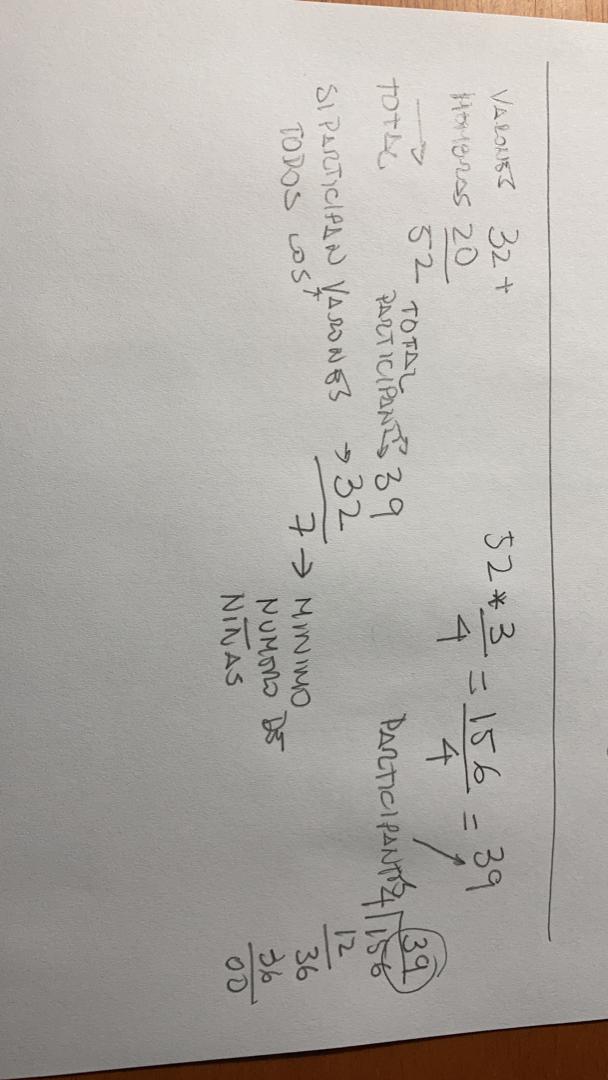 VARONES 32 +
HOMBRAS 20
52
TOTAL
TOTAL
PARTICIPANTES 39
SI PARTICIPAN VARONES → 32
TODOS LOS
7 → MINIMO
NUMERO DE
NIÑAS
52 * 3/4 = 156/4 = 39
PARTICIPANTES
39
4 156
12
36
36
00